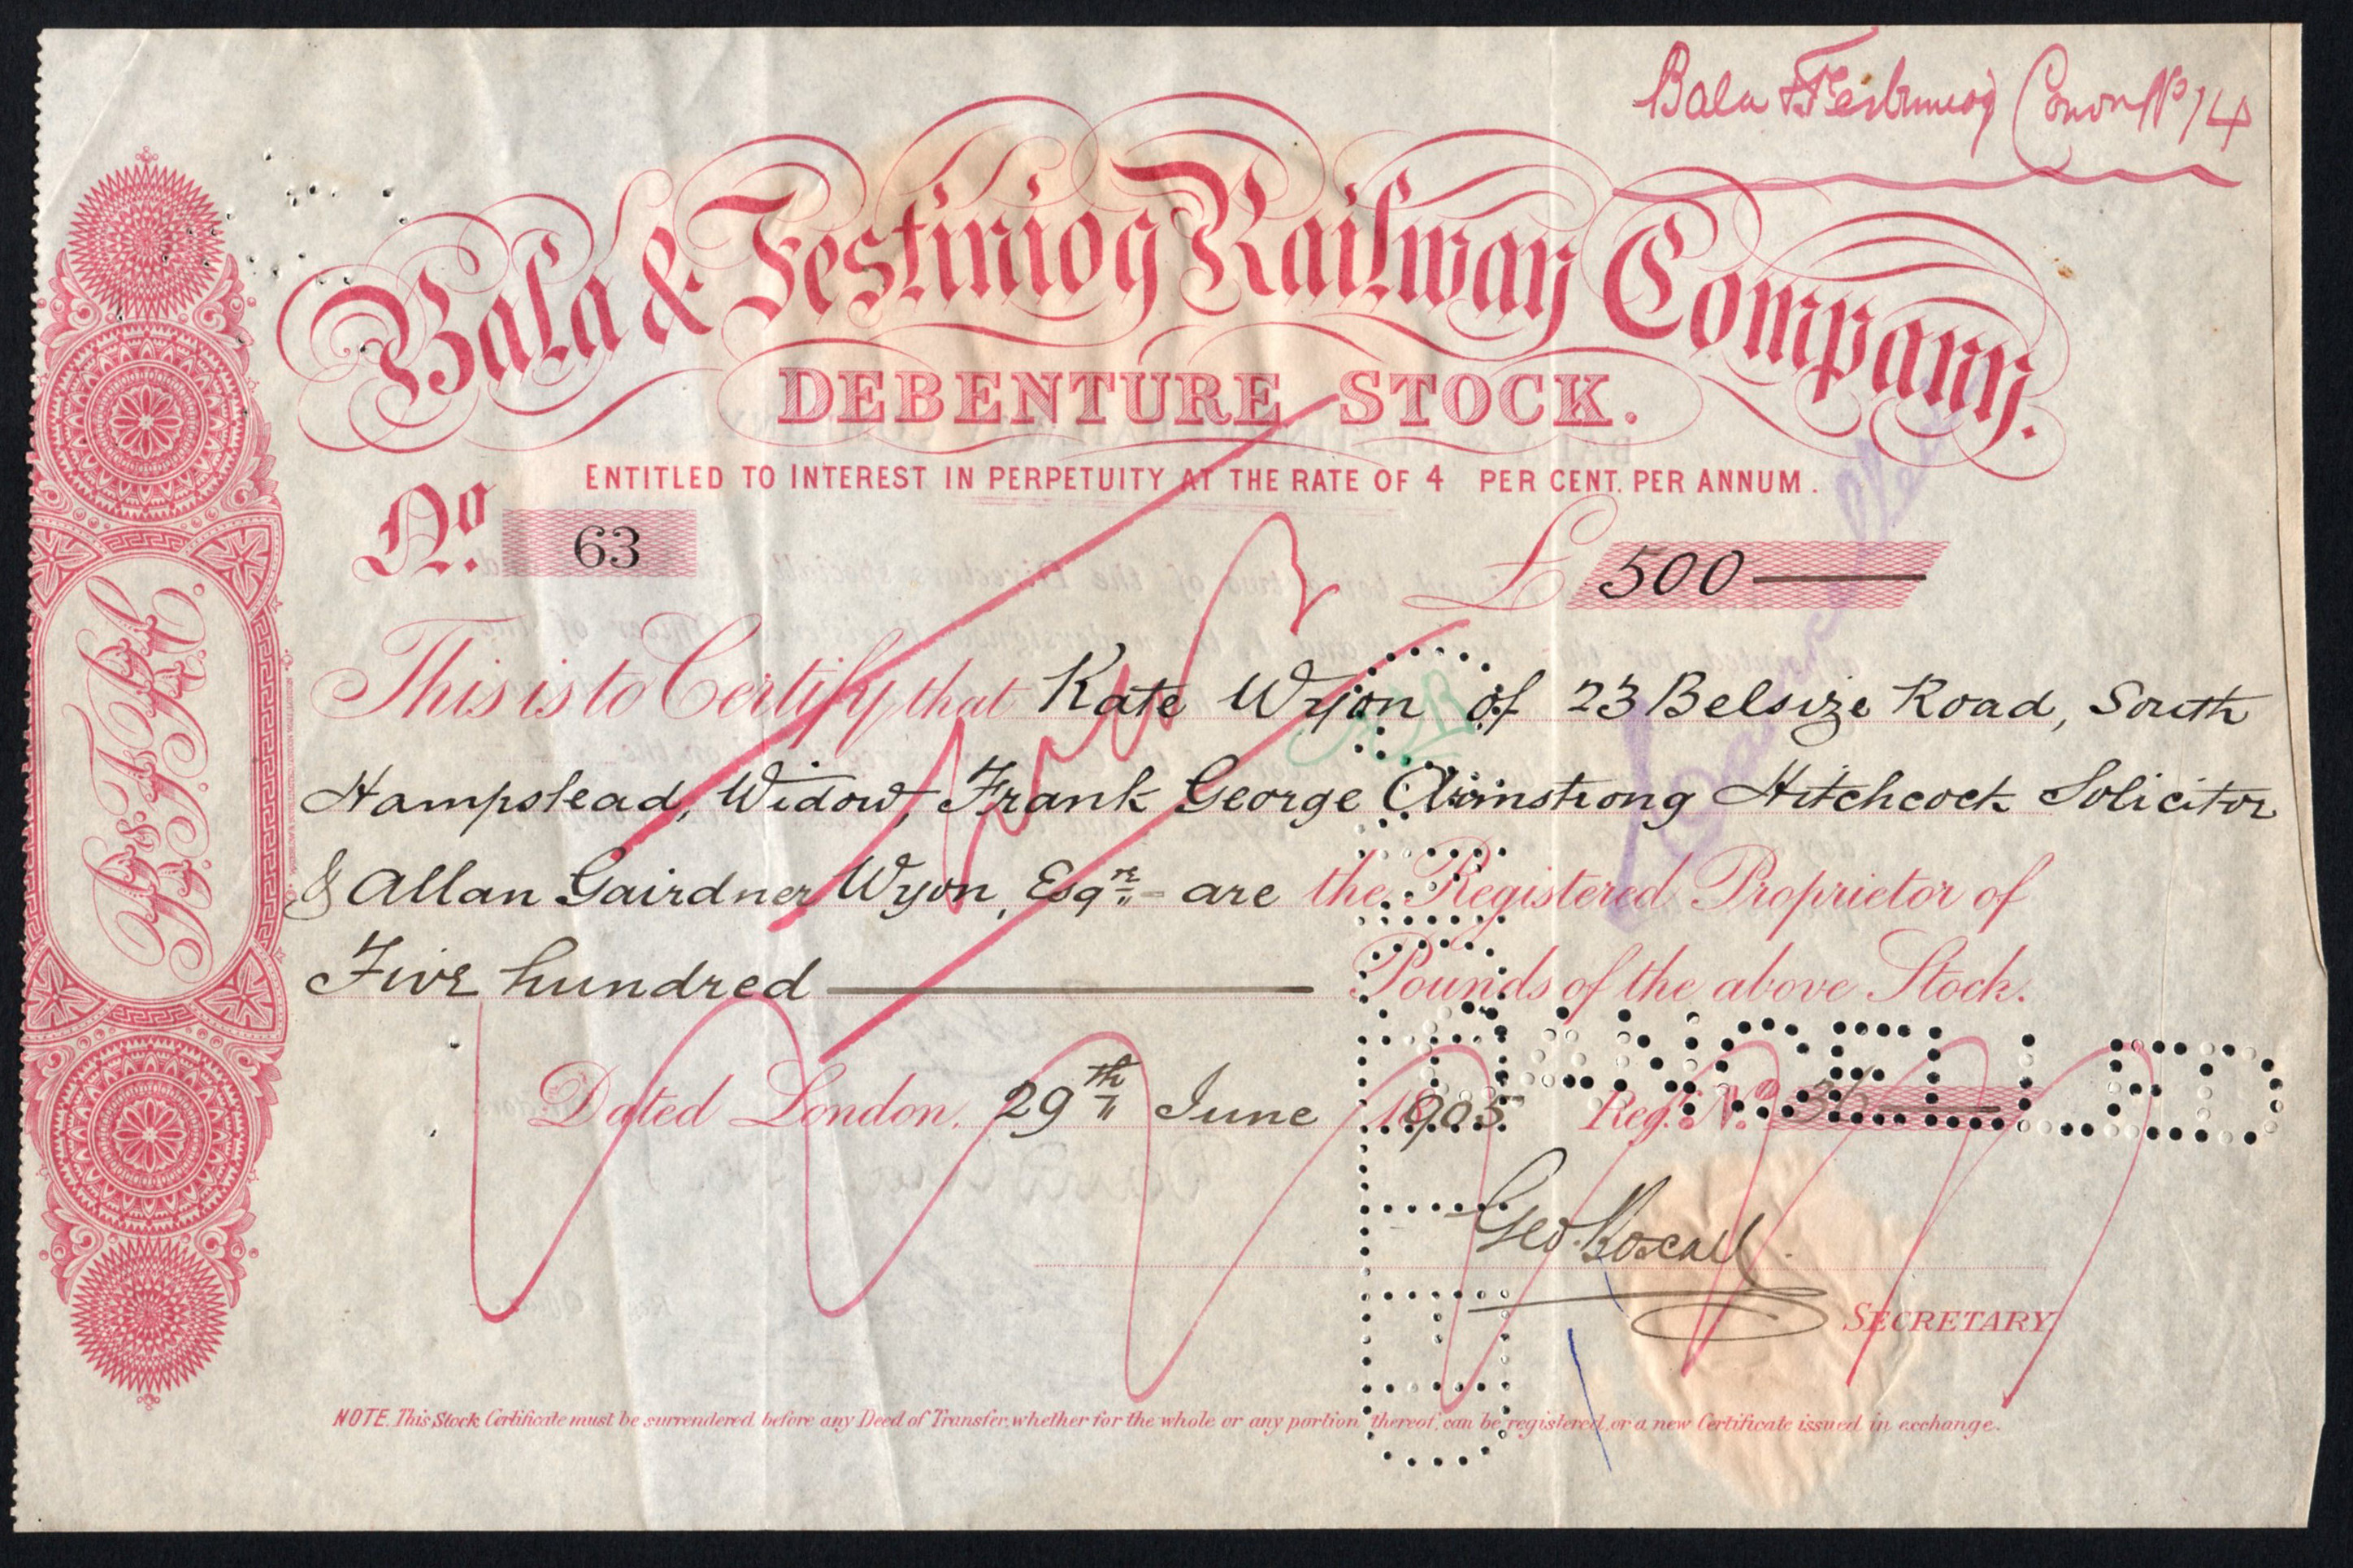 Bala & Festiniog Conon No 14
Bala & Festiniog Railway Company.
DEBENTURE STOCK.
ENTITLED TO INTEREST IN PERPETUITY AT THE RATE OF 4 PER CENT. PER ANNUM.
No. 63 £ 500
This is to Certify that Kate Wyon of 23 Belsize Road, South
Hampstead, Widow, Frank George Armstrong Hitchcock Solicitor
& Allan Gairdner Wyon, Esqre are the Registered Proprietor of
Five hundred Pounds of the above Stock.
Dated London, 29th June 1905 Reg. No. 36
CANCELLED
CANCELLED
Cancelled
Geo. Boxall
SECRETARY
NOTE. This Stock Certificate must be surrendered before any Deed of Transfer, whether for the whole or any portion thereof, can be registered, or a new Certificate issued in exchange.
B. & F. R. Co.